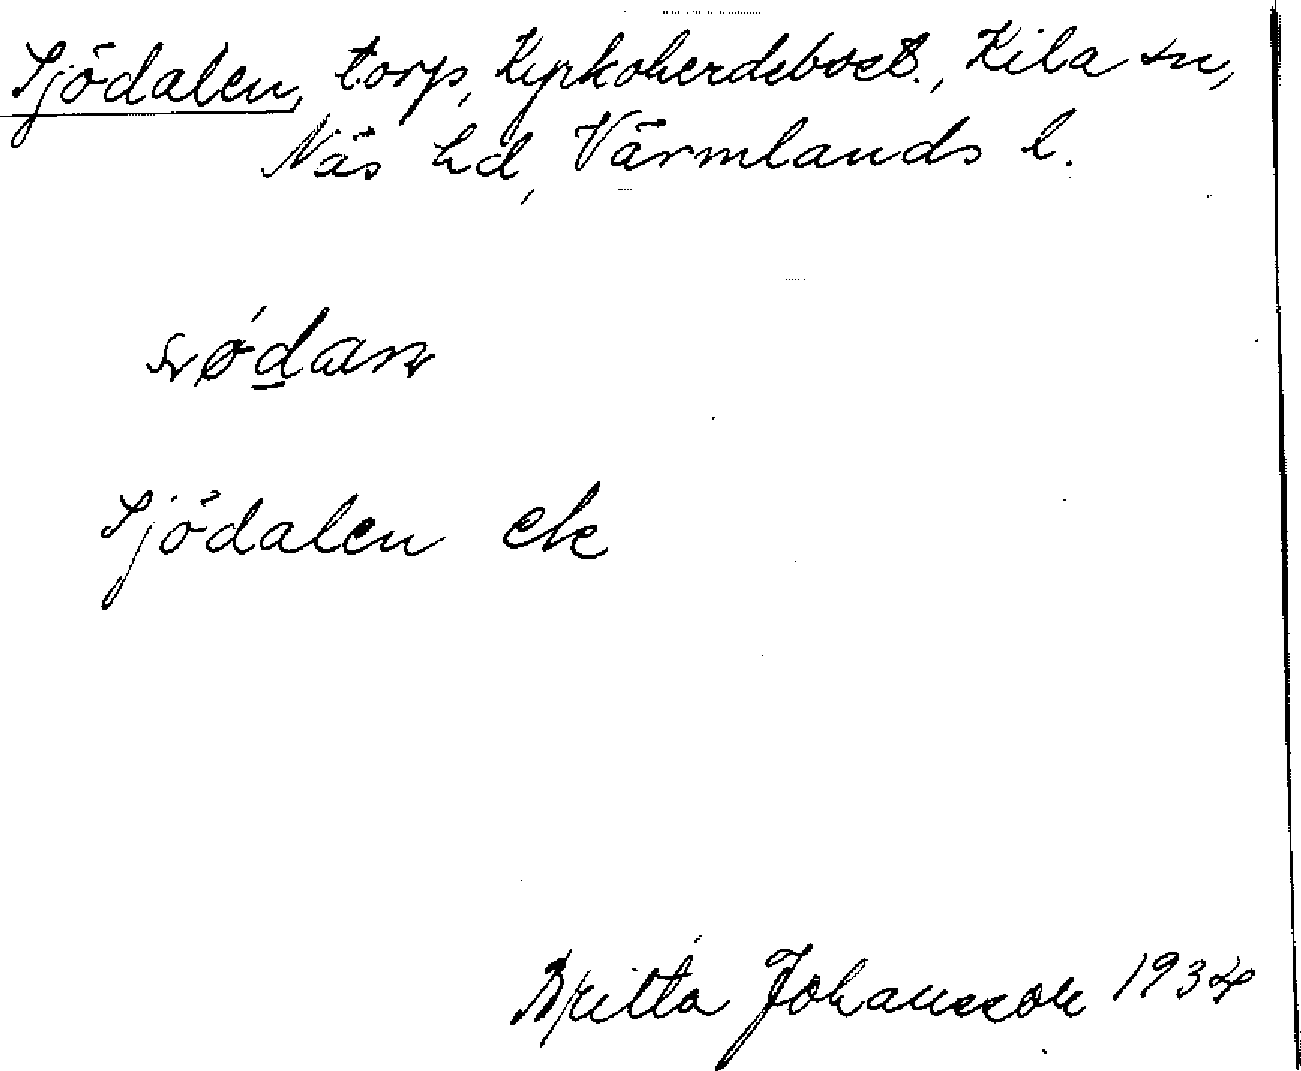 Sjödalen, torp, Kyrkoherdebost., Kila sn,
Näs hd, Värmlands l.
Sjödalen ek
Britta Johansson 1934